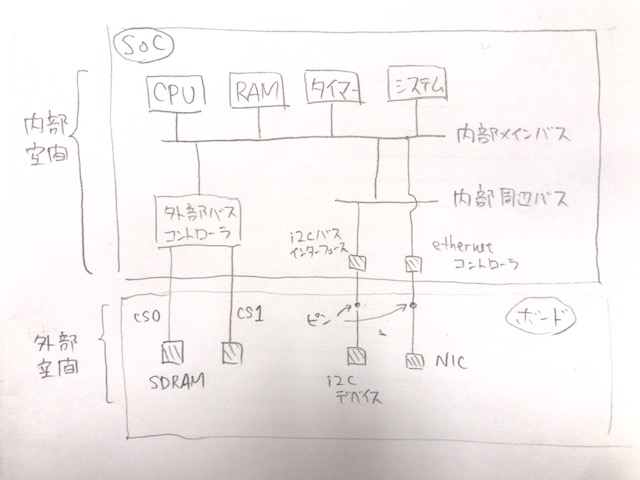 SoC
CPU
RAM
タイマー
システム
内部
空間
内部メインバス
内部周辺バス
外部バス
コントローラ
i2cバス
インターフェース
ethernet
コントローラ
CS0
CS1
ピン
ボード
外部
空間
SDRAM
i2c
デバイス
NIC